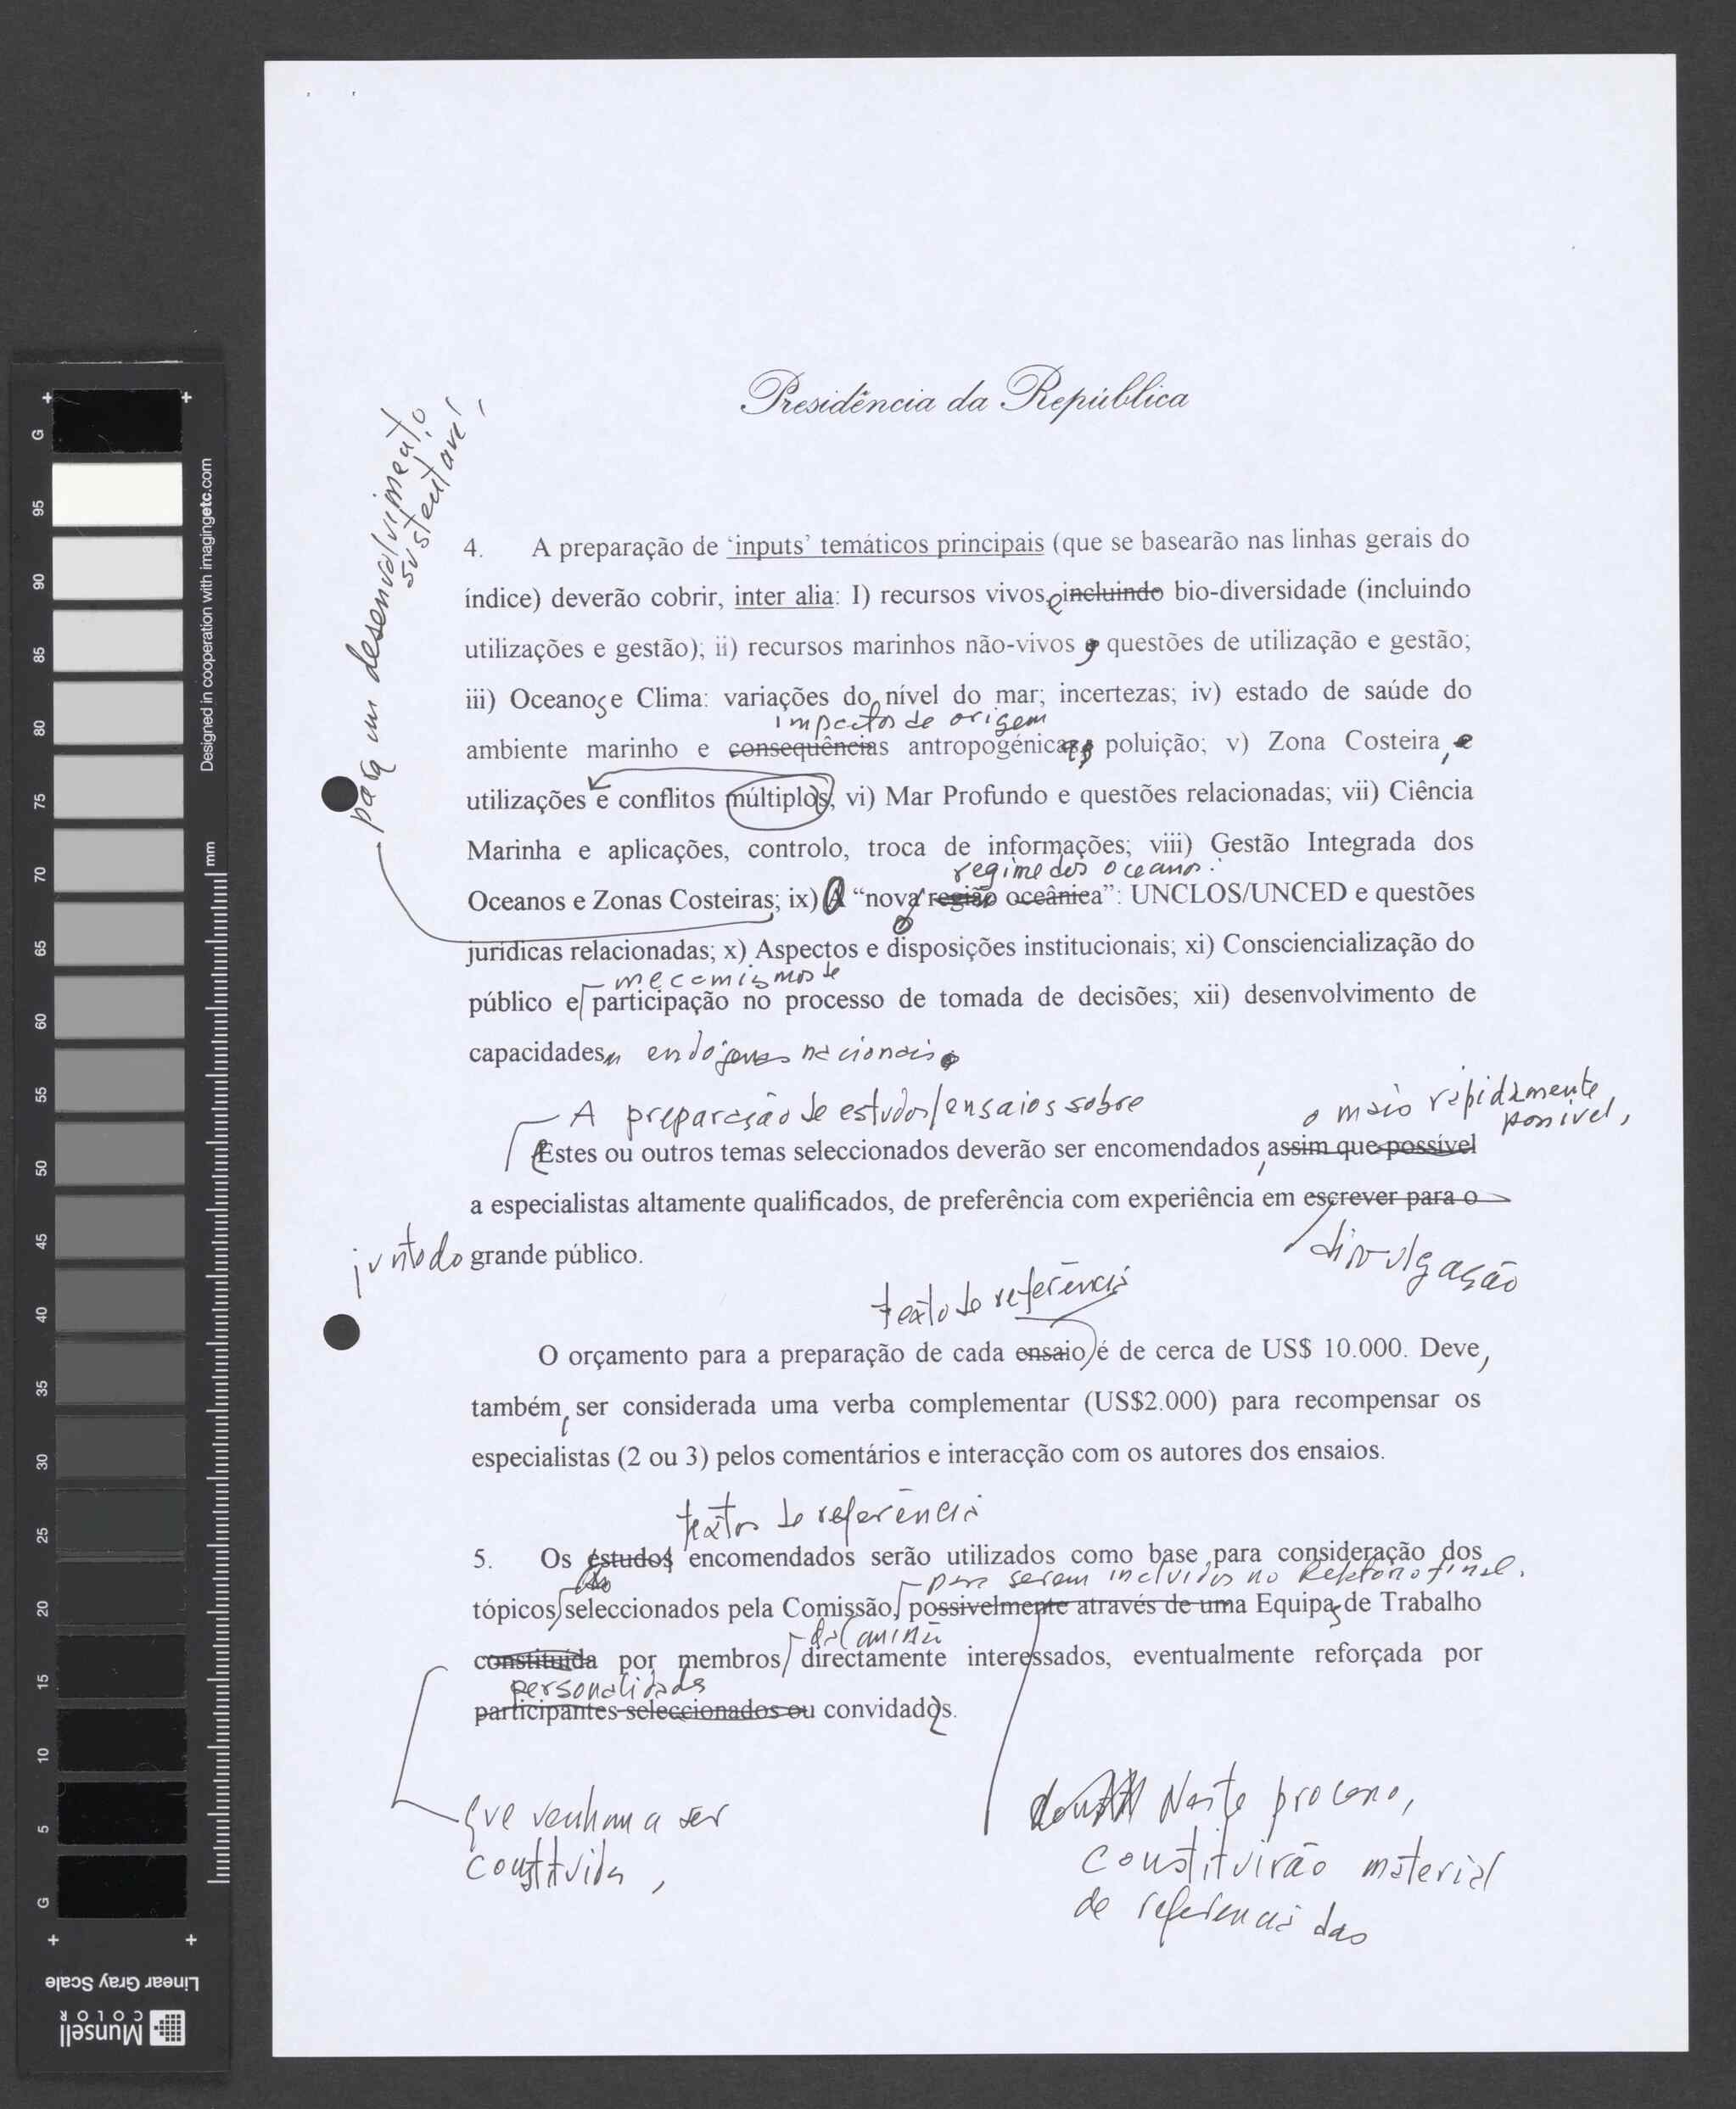 Presidência da República
para um desenvolvimento
sustentável,
4. A preparação de ‘inputs’ temáticos principais (que se basearão nas linhas gerais do
índice) deverão cobrir, inter alia: I) recursos vivos e incluindo bio-diversidade (incluindo
utilizações e gestão); ii) recursos marinhos não-vivos, questões de utilização e gestão;
iii) Oceanos e Clima: variações do nível do mar; incertezas; iv) estado de saúde do
impactos de origem
ambiente marinho e consequências antropogénica, poluição; v) Zona Costeira, e
utilizações e conflitos múltiplos; vi) Mar Profundo e questões relacionadas; vii) Ciência
Marinha e aplicações, controlo, troca de informações; viii) Gestão Integrada dos
regime dos oceanos:
Oceanos e Zonas Costeiras; ix) O “novo região oceânica”: UNCLOS/UNCED e questões
jurídicas relacionadas; x) Aspectos e disposições institucionais; xi) Consciencialização do
mecanismos de
público e participação no processo de tomada de decisões; xii) desenvolvimento de
capacidades endógenas nacionais.
A preparação de estudos/ensaios sobre
o mais rapidamente
possível,
Estes ou outros temas seleccionados deverão ser encomendados, assim que possível
a especialistas altamente qualificados, de preferência com experiência em escrever para o
divulgação
junto do grande público.
texto de referência
O orçamento para a preparação de cada ensaio é de cerca de US$ 10.000. Deve,
também, ser considerada uma verba complementar (US$2.000) para recompensar os
especialistas (2 ou 3) pelos comentários e interacção com os autores dos ensaios.
textos de referência
5. Os estudos encomendados serão utilizados como base para consideração dos
para serem incluidos no Relatório final.
tópicos seleccionados pela Comissão, possivelmente através de uma Equipas de Trabalho
da Comissão
constituída por membros directamente interessados, eventualmente reforçada por
personalidades
participantes seleccionados ou convidadas.
que venham a ser
constituidas,
Neste processo,
constituirão material
de referencia das
G
95
90
85
80
75
70
65
60
55
50
45
40
35
30
25
20
15
10
5
G
mm
Designed in cooperation with imagingetc.com
Linear Gray Scale
Munsell
COLOR